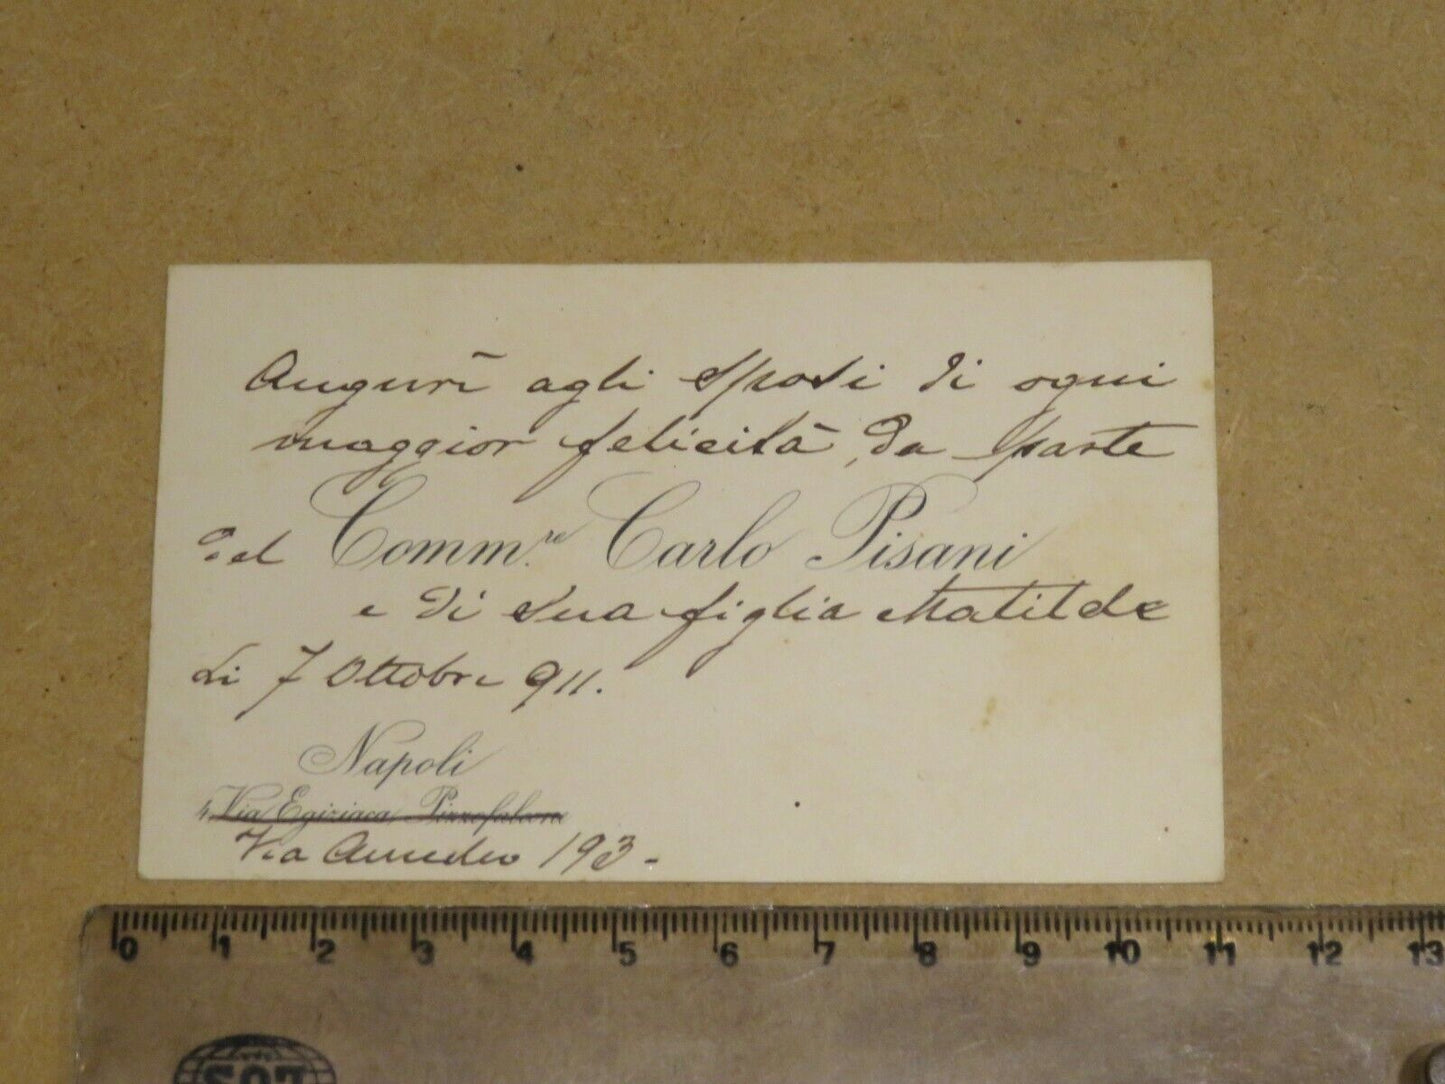 Augurî agli sposi di ogni
maggior felicità, da parte
del Comm.re Carlo Pisani
e di sua figlia Matilde
Li 7 Ottobre 911.
Napoli
4, Via Egiziaca, Pizzofalcone
Via Amedeo 193 -
0 1 2 3 4 5 6 7 8 9 10 11 12 13